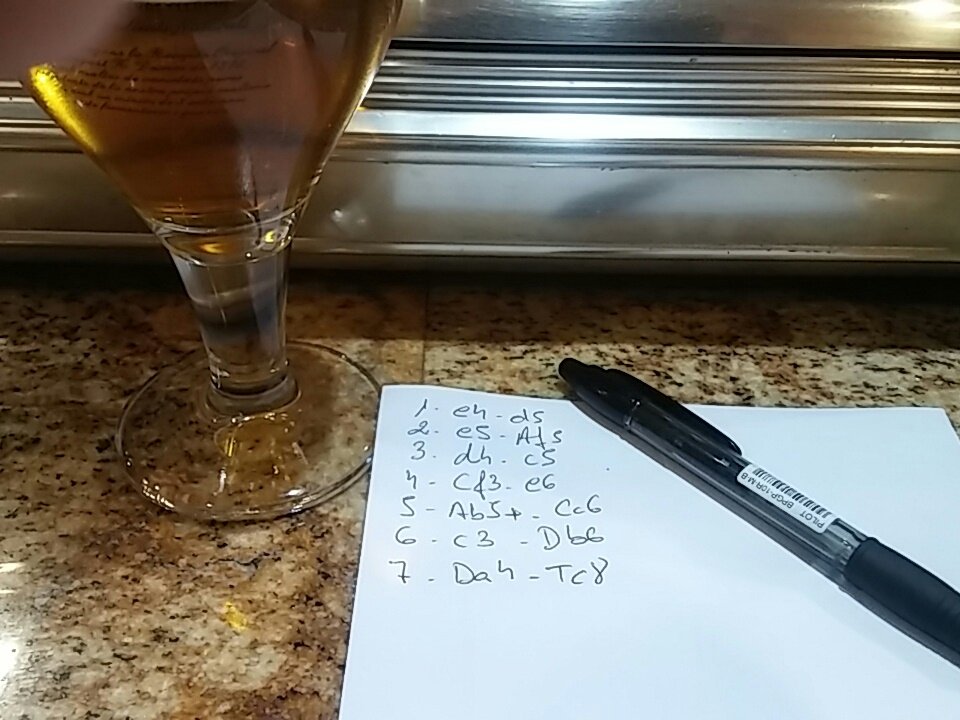 1. e4 - d5
2. e5 - Af5
3. d4 - c5
4 - Cf3 - e6
5 - Ab5+ - Cc6
6 - c3 - Db6
7 - Da4 - Tc8
PILOT BPGP-10R-M-B